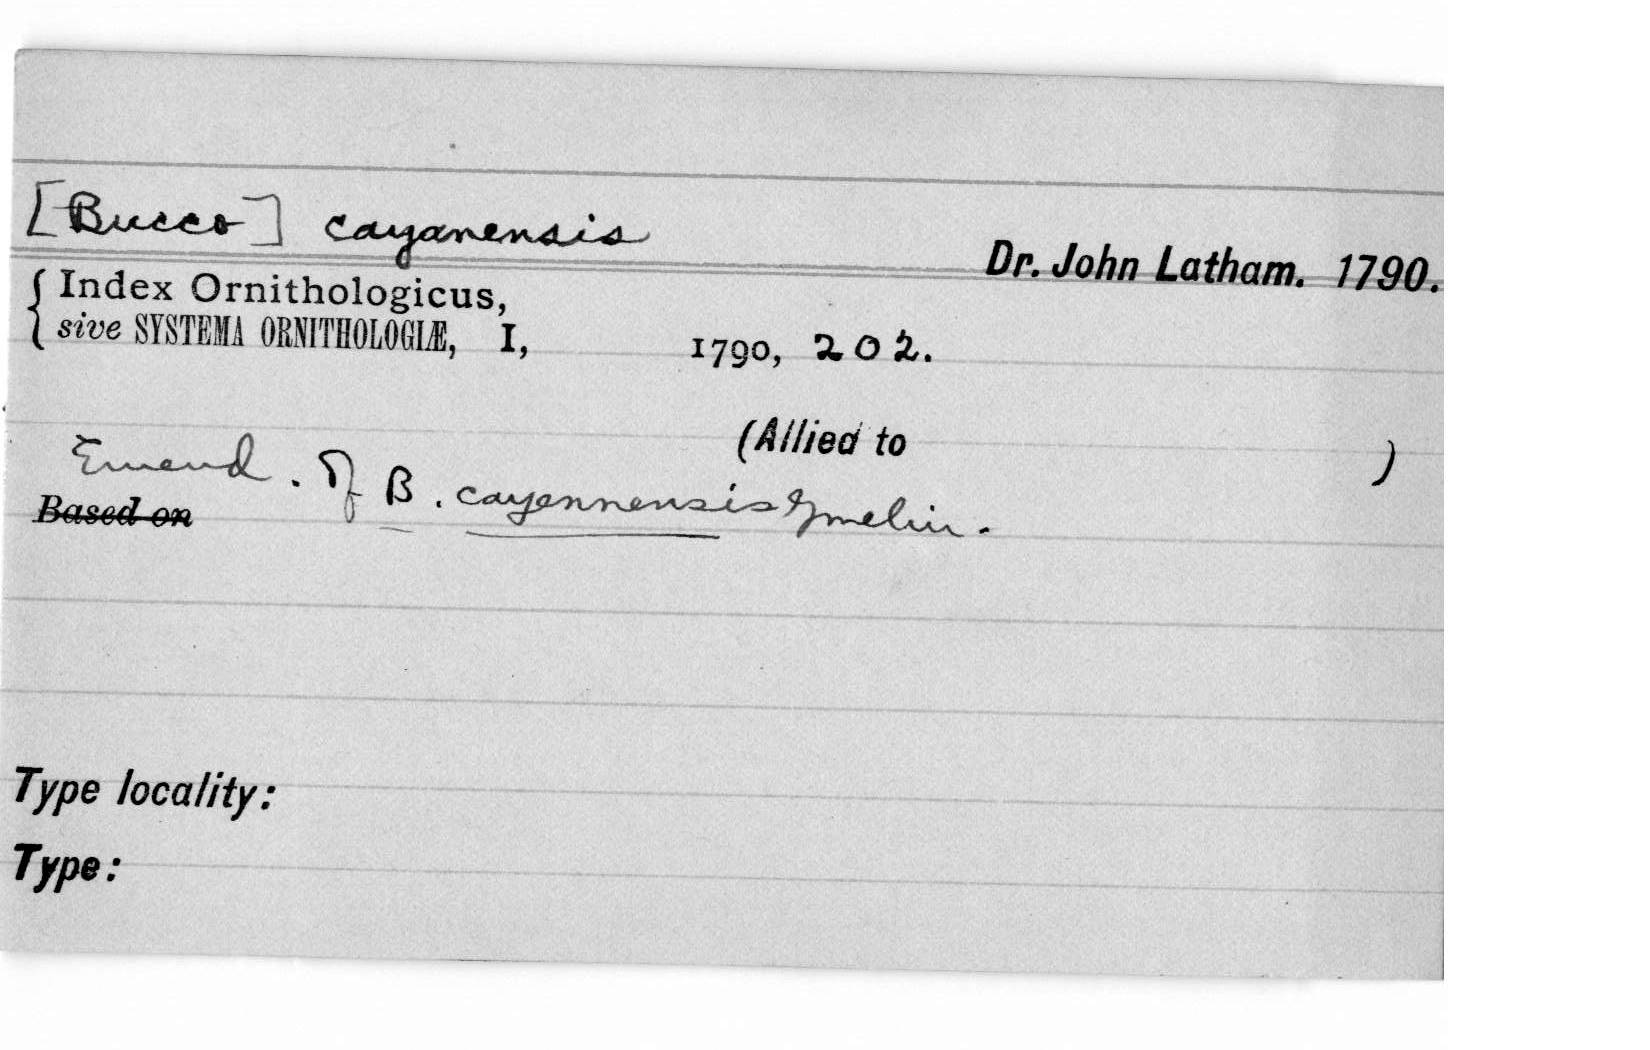 [Bucco] cayanensis
Dr. John Latham. 1790.
Index Ornithologicus,
sive SYSTEMA ORNITHOLOGIÆ, I, 1790, 202.
(Allied to )
Emend. of B. cayennensis Gmelin.
Based on
Type locality:
Type: